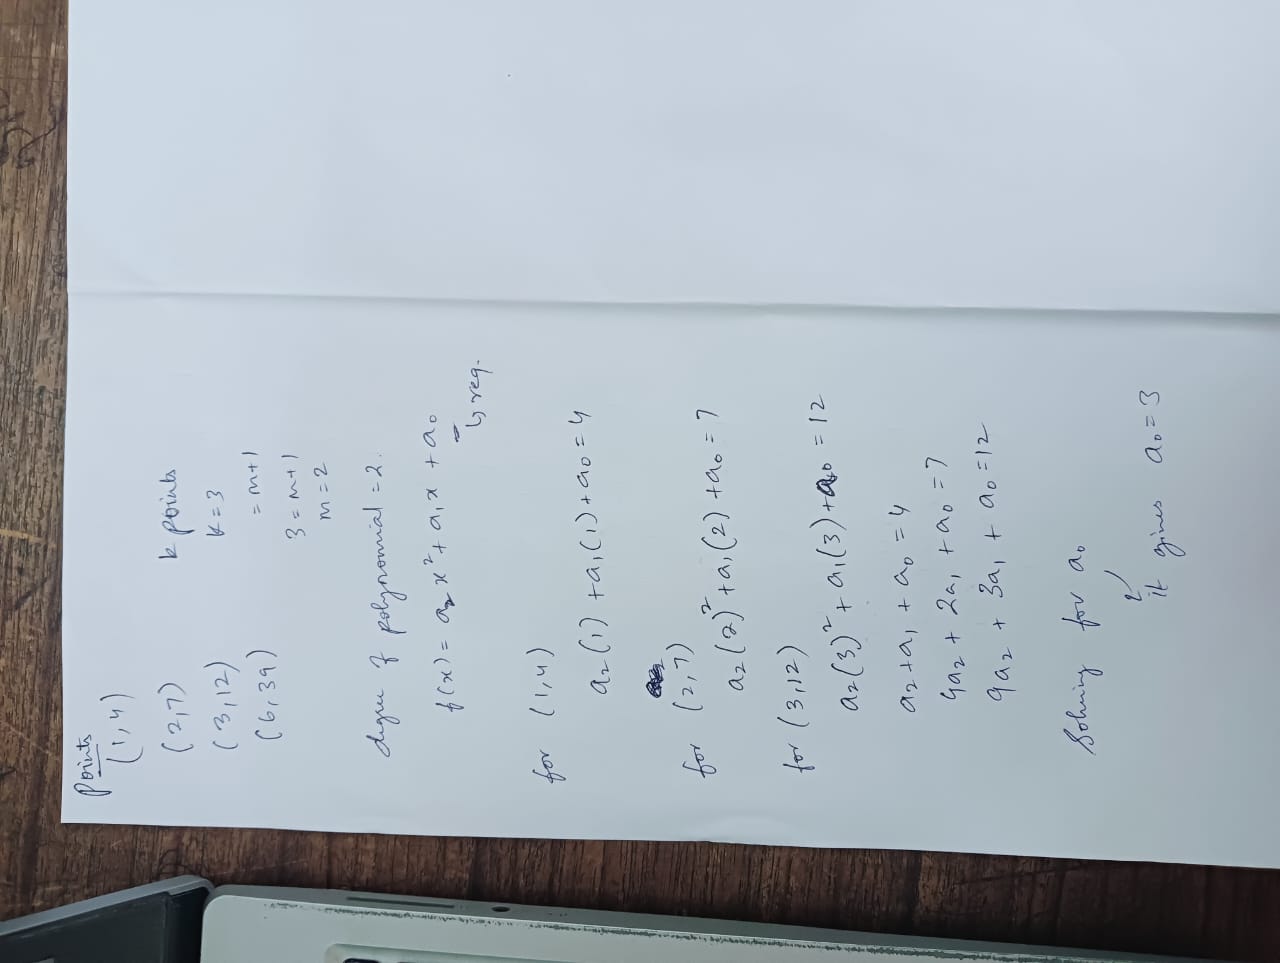 Points
(1,4)
(2,7)
(3,12)
(6,39)
k points
k = 3
= m+1
3 = m+1
m = 2
degree of polynomial = 2.
f(x) = a₂x² + a₁x + a₀
↳ req.
for (1,4)
a₂(1) + a₁(1) + a₀ = 4
for (2,7)
a₂(2)² + a₁(2) + a₀ = 7
for (3,12)
a₂(3)² + a₁(3) + a₀ = 12
a₂ + a₁ + a₀ = 4
4a₂ + 2a₁ + a₀ = 7
9a₂ + 3a₁ + a₀ = 12
Solving for a₀
it gives a₀ = 3